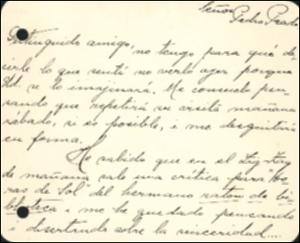 Señor
Pedro Prado
Distinguido amigo, no tengo para qué de-
cirle lo que sentí no verlo ayer porque
Ud. se lo imaginará. Me consuelo pen-
sando que repetirá su visita mañana
sábado, si es posible, i me desquitaré
en forma.
He sabido que en el Zig-Zag
de mañana sale una crítica para "Ho-
ras de Sol" del hermano ratón de bi-
blioteca i me he quedado pensando
i disertando sobre la sinceridad....